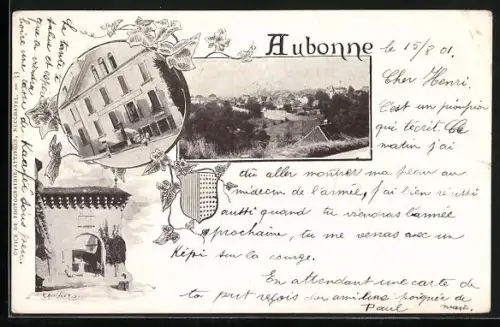 Aubonne
le 15/8 01.
Cher Henri.
C'est un pioupiou
qui t'écrit. Ce
matin j'ai
dû aller montrer ma peau au
médecin de l'armée, j'ai bien réussi
aussi quand tu viendras l'année
prochaine, tu me verras avec un
Képi sur la courge.
En attendant une carte de
toi put reçois des amitiés poignée de
Paul main.
La tante te
salue et espère
que
boire une
Kaefer sous peu